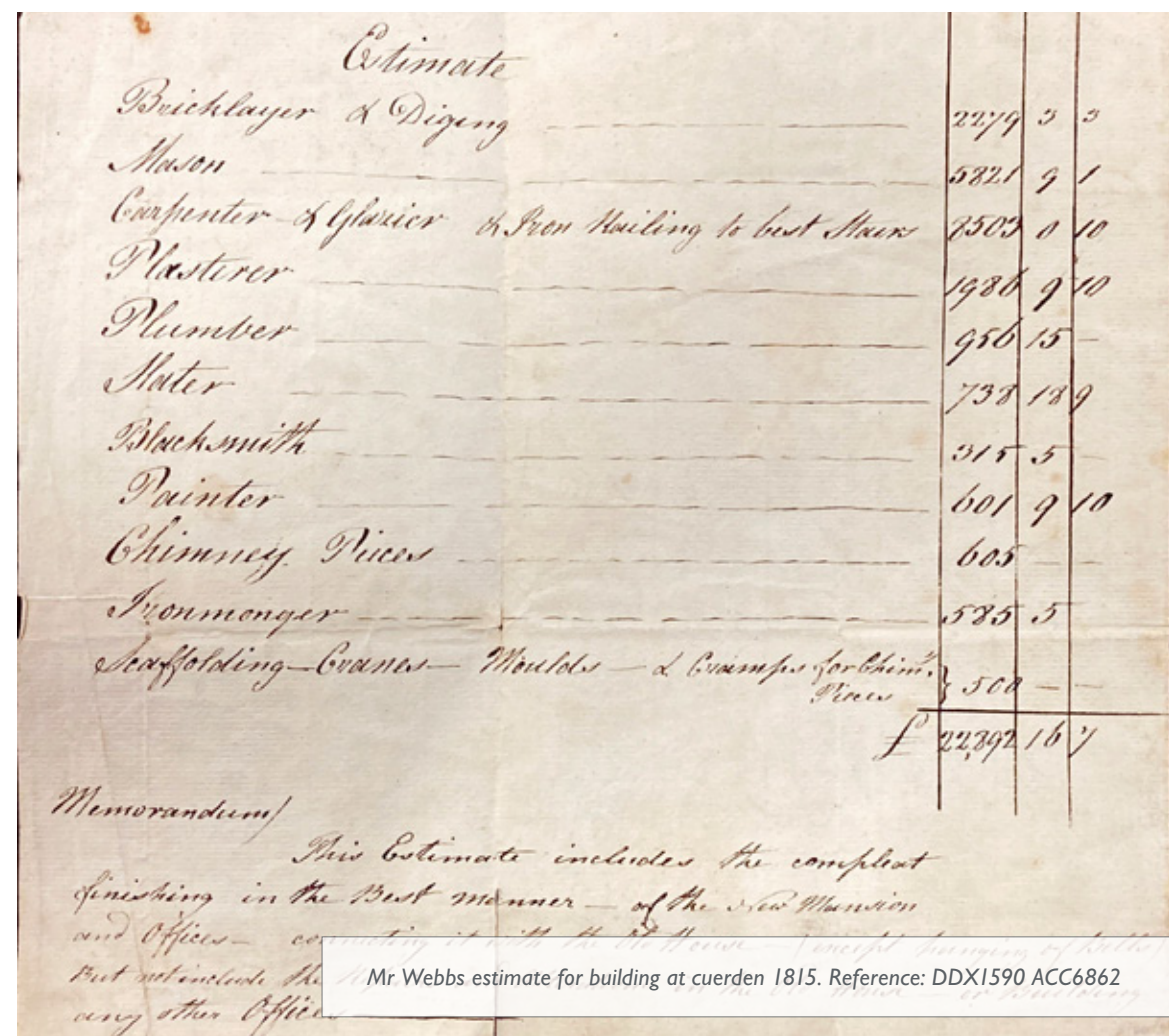 Estimate
Bricklayer & Diging 2279 3 3
Mason 5821 9 1
Carpenter & Glazier & Iron Railing to best Stairs 8503 0 10
Plasterer 1986 9 10
Plumber 956 15 —
Slater 738 18 9
Blacksmith 315 5 —
Painter 601 9 10
Chimney Pieces 605 — —
Ironmonger 585 5
Scaffolding — Cranes — Moulds — & Cramps for Chimy.
Pieces } 500 — —
£ 22,892 16 7
Memorandum/
This Estimate includes the compleat
finishing in the Best manner — of the New Mansion
and Offices — connecting it with the Old House — (except hanging of Bells)
But not include the in the Old House — or Building
any other Offices
Mr Webbs estimate for building at cuerden 1815. Reference: DDX1590 ACC6862